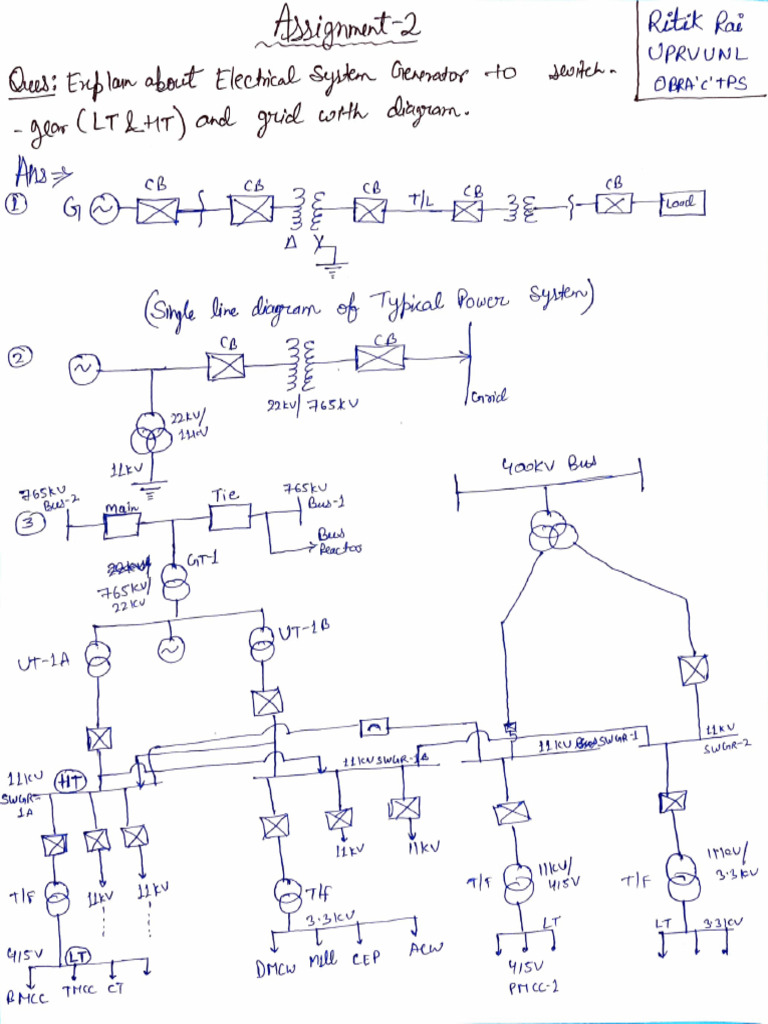 Assignment-2
Ritik Rai
UPRVUNL
OBRA'C'TPS
Ques: Explain about Electrical System Generator to switch-
-gear (LT & HT) and grid with diagram.
Ans ⇒
① G CB CB CB T/L CB CB Load
Δ Y
(Single line diagram of Typical Power System)
② CB CB
22KV/765KV Grid
22KV/
11KV
11KV
400KV Bus
③ 765KV
Bus-2
Main Tie 765KV
Bus-1
Bus
Reactor
GT-1
765KV/
22KV
UT-1A UT-1B
11KV
SWGR-
1A
HT
11KV SWGR-1B
11KV SWGR-1
11KV
SWGR-2
11KV 11KV
T/F 11KV 11KV
T/f
T/F 11KV/
415V
T/F 3.3KV
415V LT
3.3KV
LT
LT 3.3KV
RMCC TMCC CT
DMCW Mill CEP ACW
415V
PMCC-1